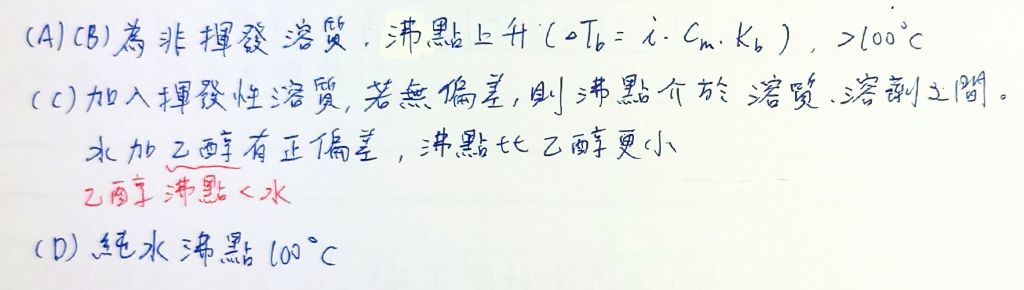 (A)(B)為非揮發溶質,沸點上升(△Tb = i・Cm・Kb),>100°C
(C)加入揮發性溶質,若無偏差,則沸點介於溶質、溶劑之間。
水加乙醇有正偏差,沸點比乙醇更小
乙醇沸點<水
(D)純水沸點100°C